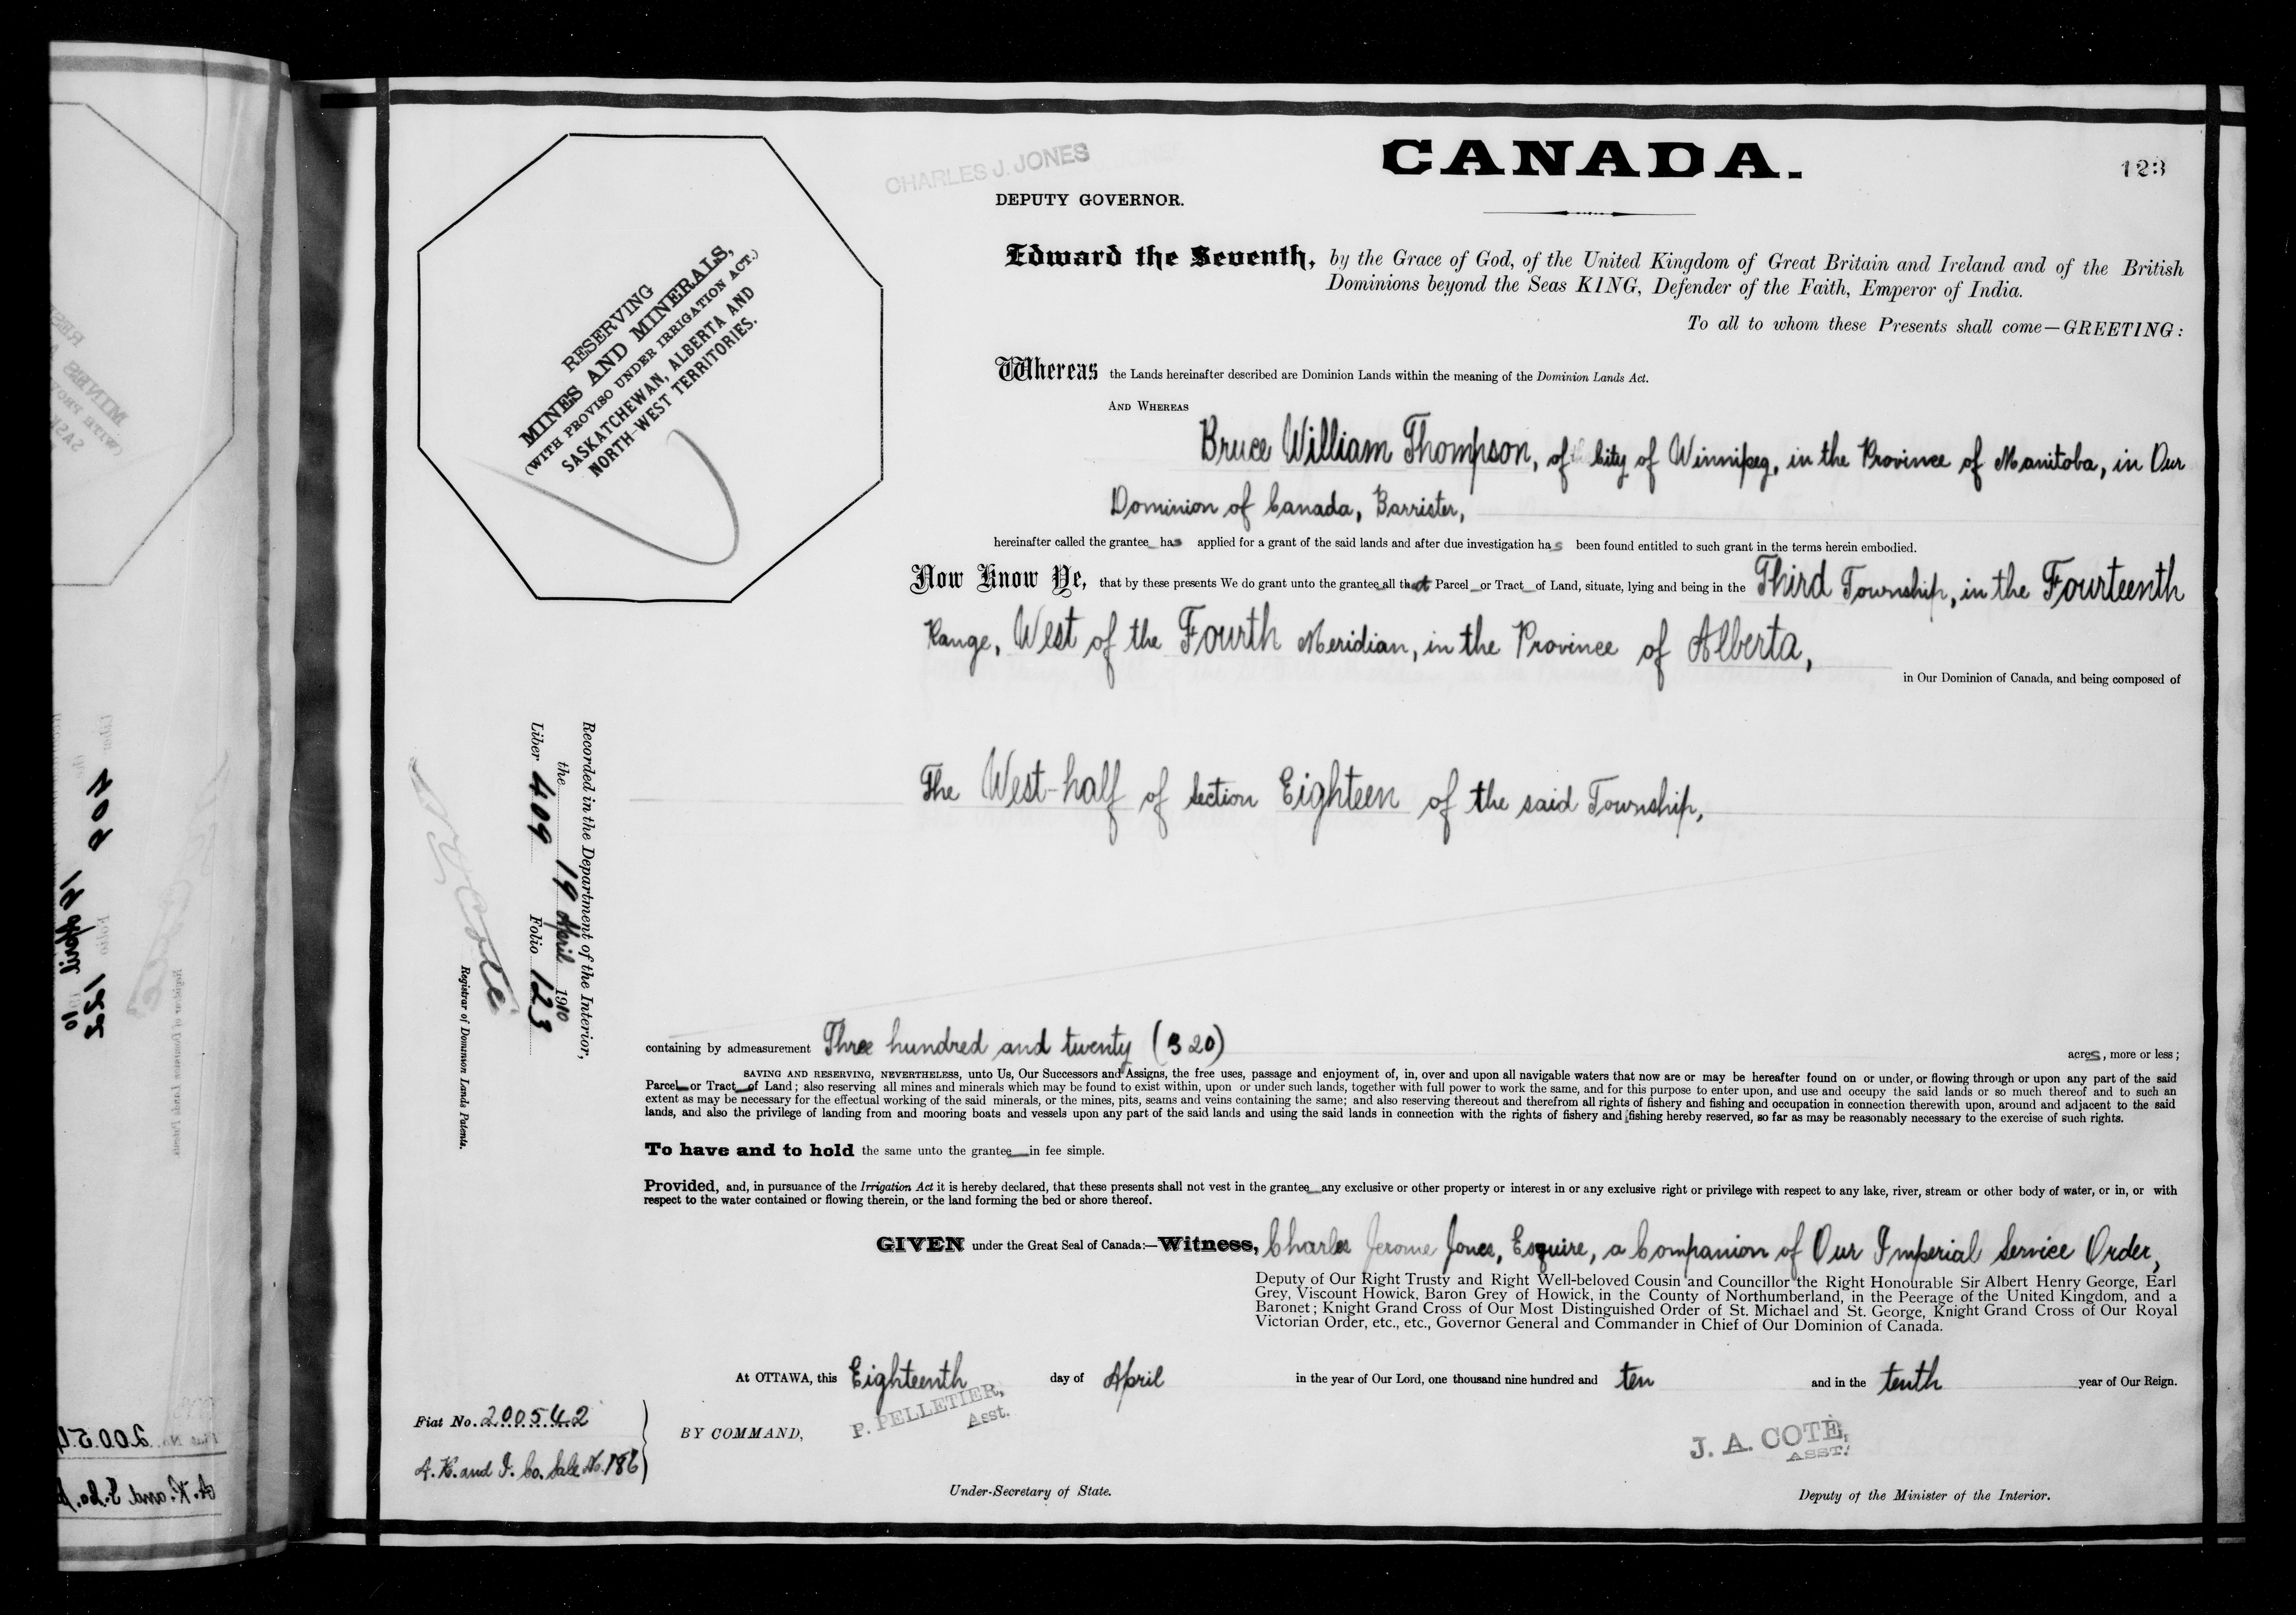 CHARLES J. JONES
CANADA.
123
DEPUTY GOVERNOR.
RESERVING
MINES AND MINERALS,
(WITH PROVISO UNDER IRRIGATION ACT.)
SASKATCHEWAN, ALBERTA AND
NORTH-WEST TERRITORIES.
Edward the Seventh, by the Grace of God, of the United Kingdom of Great Britain and Ireland and of the British
Dominions beyond the Seas KING, Defender of the Faith, Emperor of India.
To all to whom these Presents shall come—GREETING:
Whereas the Lands hereinafter described are Dominion Lands within the meaning of the Dominion Lands Act.
AND WHEREAS
Bruce William Thompson, of City of Winnipeg, in the Province of Manitoba, in Our
Dominion of Canada, Barrister,
hereinafter called the grantee has applied for a grant of the said lands and after due investigation has been found entitled to such grant in the terms herein embodied.
Now Know Ye, that by these presents We do grant unto the grantee all that Parcel or Tract of Land, situate, lying and being in the Third Township, in the Fourteenth
Range, West of the Fourth Meridian, in the Province of Alberta,
in Our Dominion of Canada, and being composed of
The West-half of Section Eighteen of the said Township,
Recorded in the Department of the Interior,
the 19 April 1910
Liber 409 Folio 123
Registrar of Dominion Lands Patents.
containing by admeasurement Three hundred and twenty (320) acres, more or less;
SAVING AND RESERVING, NEVERTHELESS, unto Us, Our Successors and Assigns, the free uses, passage and enjoyment of, in, over and upon all navigable waters that now are or may be hereafter found on or under, or flowing through or upon any part of the said
Parcel or Tract of Land; also reserving all mines and minerals which may be found to exist within, upon or under such lands, together with full power to work the same, and for this purpose to enter upon, and use and occupy the said lands or so much thereof and to such an
extent as may be necessary for the effectual working of the said minerals, or the mines, pits, seams and veins containing the same; and also reserving thereout and therefrom all rights of fishery and fishing and occupation in connection therewith upon, around and adjacent to the said
lands, and also the privilege of landing from and mooring boats and vessels upon any part of the said lands and using the said lands in connection with the rights of fishery and fishing hereby reserved, so far as may be reasonably necessary to the exercise of such rights.
To have and to hold the same unto the grantee in fee simple.
Provided, and, in pursuance of the Irrigation Act it is hereby declared, that these presents shall not vest in the grantee any exclusive or other property or interest in or any exclusive right or privilege with respect to any lake, river, stream or other body of water, or in, or with
respect to the water contained or flowing therein, or the land forming the bed or shore thereof.
GIVEN under the Great Seal of Canada:—Witness, Charles Jerome Jones, Esquire, a Companion of Our Imperial Service Order,
Deputy of Our Right Trusty and Right Well-beloved Cousin and Councillor the Right Honourable Sir Albert Henry George, Earl
Grey, Viscount Howick, Baron Grey of Howick, in the County of Northumberland, in the Peerage of the United Kingdom, and a
Baronet; Knight Grand Cross of Our Most Distinguished Order of St. Michael and St. George, Knight Grand Cross of Our Royal
Victorian Order, etc., etc., Governor General and Commander in Chief of Our Dominion of Canada.
At OTTAWA, this Eighteenth day of April in the year of Our Lord, one thousand nine hundred and ten and in the tenth year of Our Reign.
Fiat No. 200542
A. R. and I. Co. Sale No. 186
BY COMMAND,
P. PELLETIER,
Asst.
J. A. COTÉ,
ASST.
Under-Secretary of State.
Deputy of the Minister of the Interior.